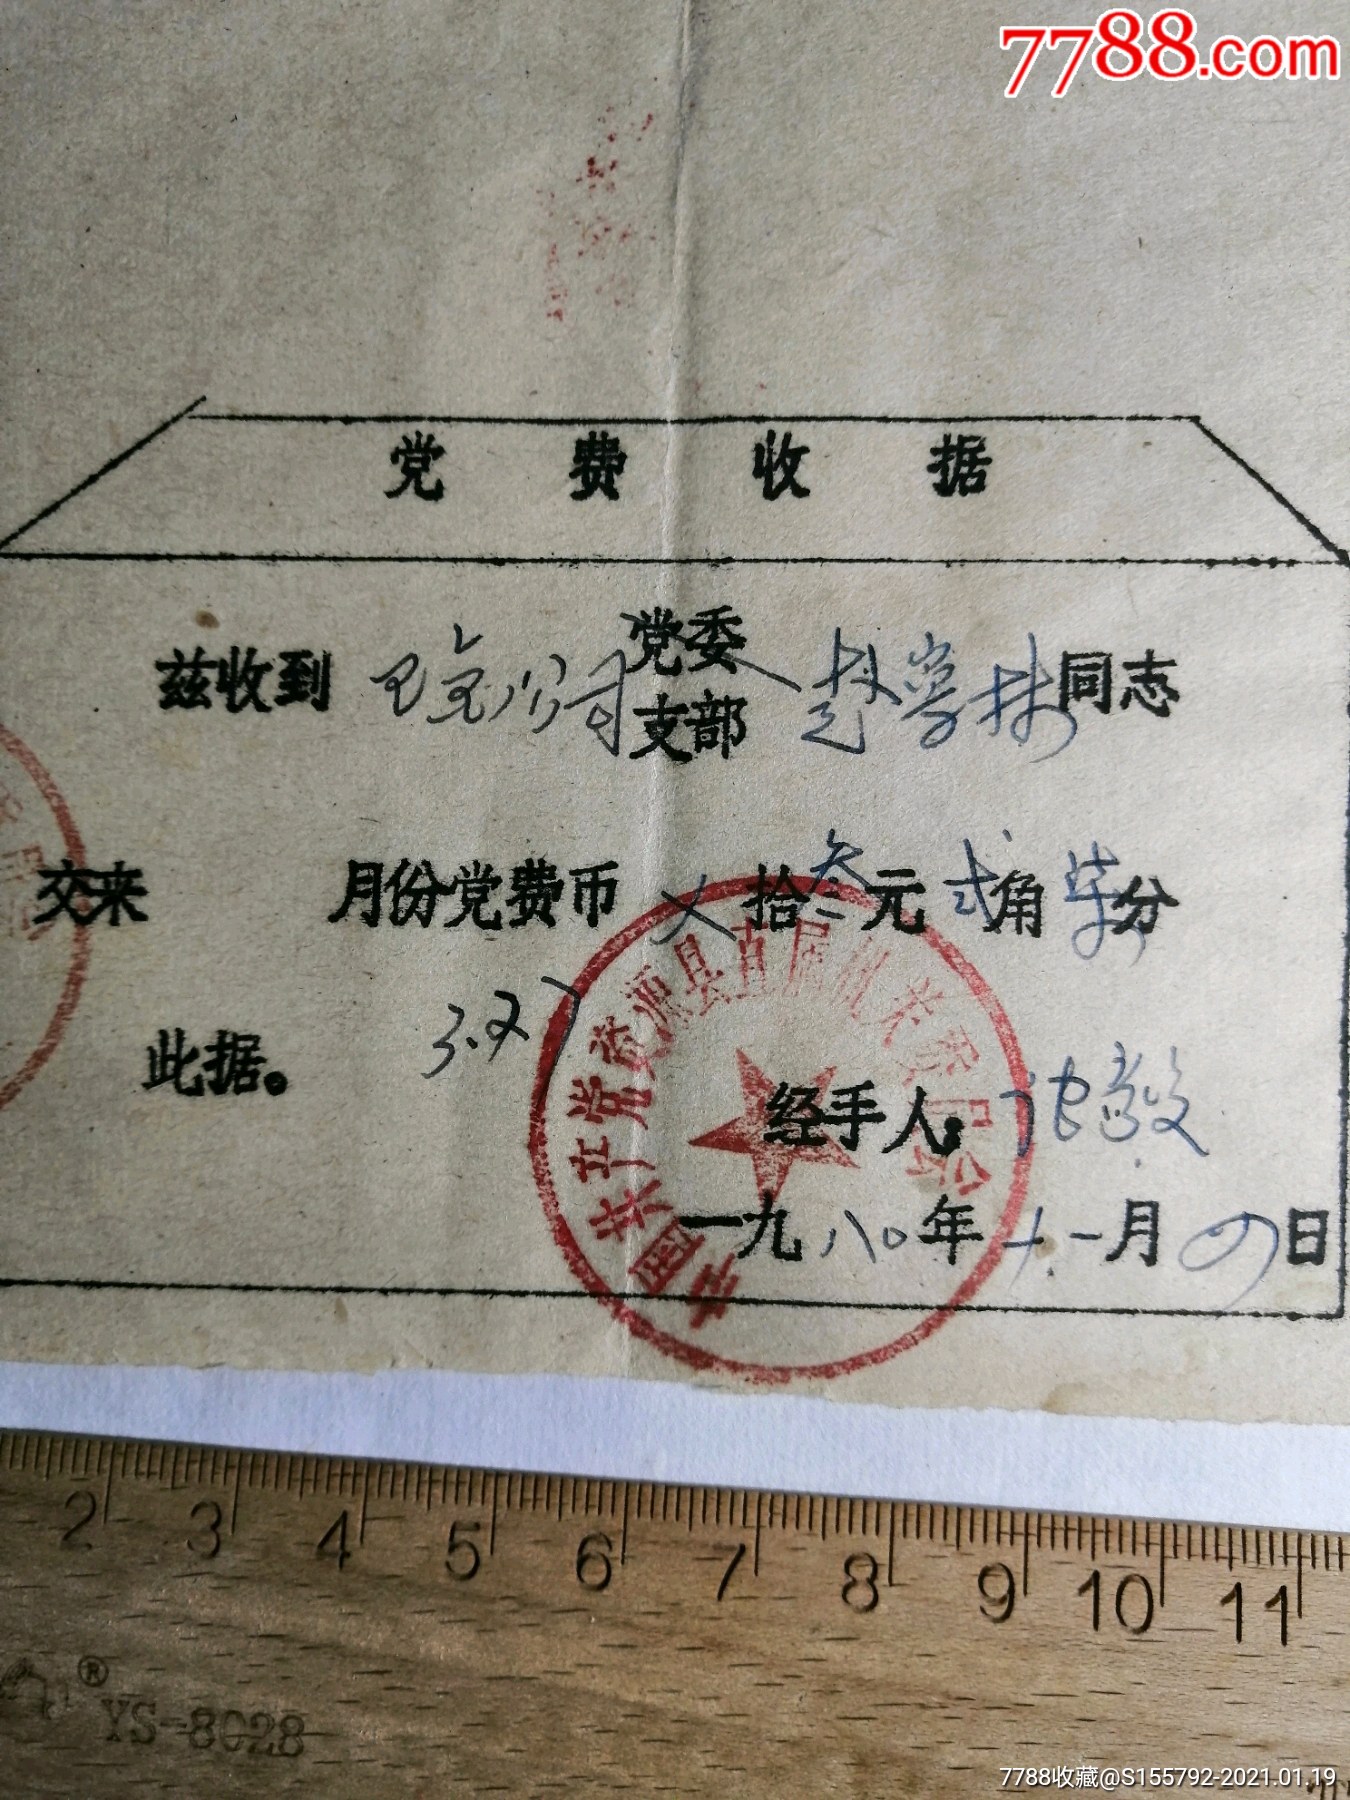 7788.com
党费收据
兹收到 公司 党委 赵学林 同志
支部
交来 月份党费币 ㄨ 拾叁元弍角柒分
3.27
此据。
经手人：沈敖
一九八〇年十一月四日
中国共产党资源县直属机关委员会
2 3 4 5 6 7 8 9 10 11
® YS-8028
7788收藏@S155792-2021.01.19